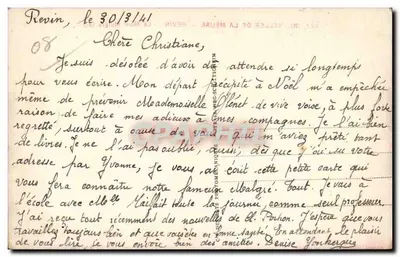 Revin, le 30/3/41
08
Chère Christiane,
Je suis désolée d'avoir dû attendre si longtemps
pour vous écrire. Mon départ précipité à Noël m'a empêchée
même de prévenir Mademoiselle de vive voix, à plus forte
raison de faire mes adieux à mes compagnes. Je l'ai bien
regretté, surtout à cause de vous qui m'aviez prêté tant
de livres. Je ne l'ai pas oublié, aussi, dès que j'ai su votre
adresse par Yvonne, je vous ai écrit cette petite carte qui
vous fera connaître notre fameuse Malgré Tout. Je vais à
l'école avec Melle toute la journée comme seul professeur.
J'ai reçu tout récemment des nouvelles de J'espère que vous
travaillez toujours bien et que vous êtes en bonne santé. En attendant le plaisir
de vous lire, je vous envoie bien des amitiés. Denise